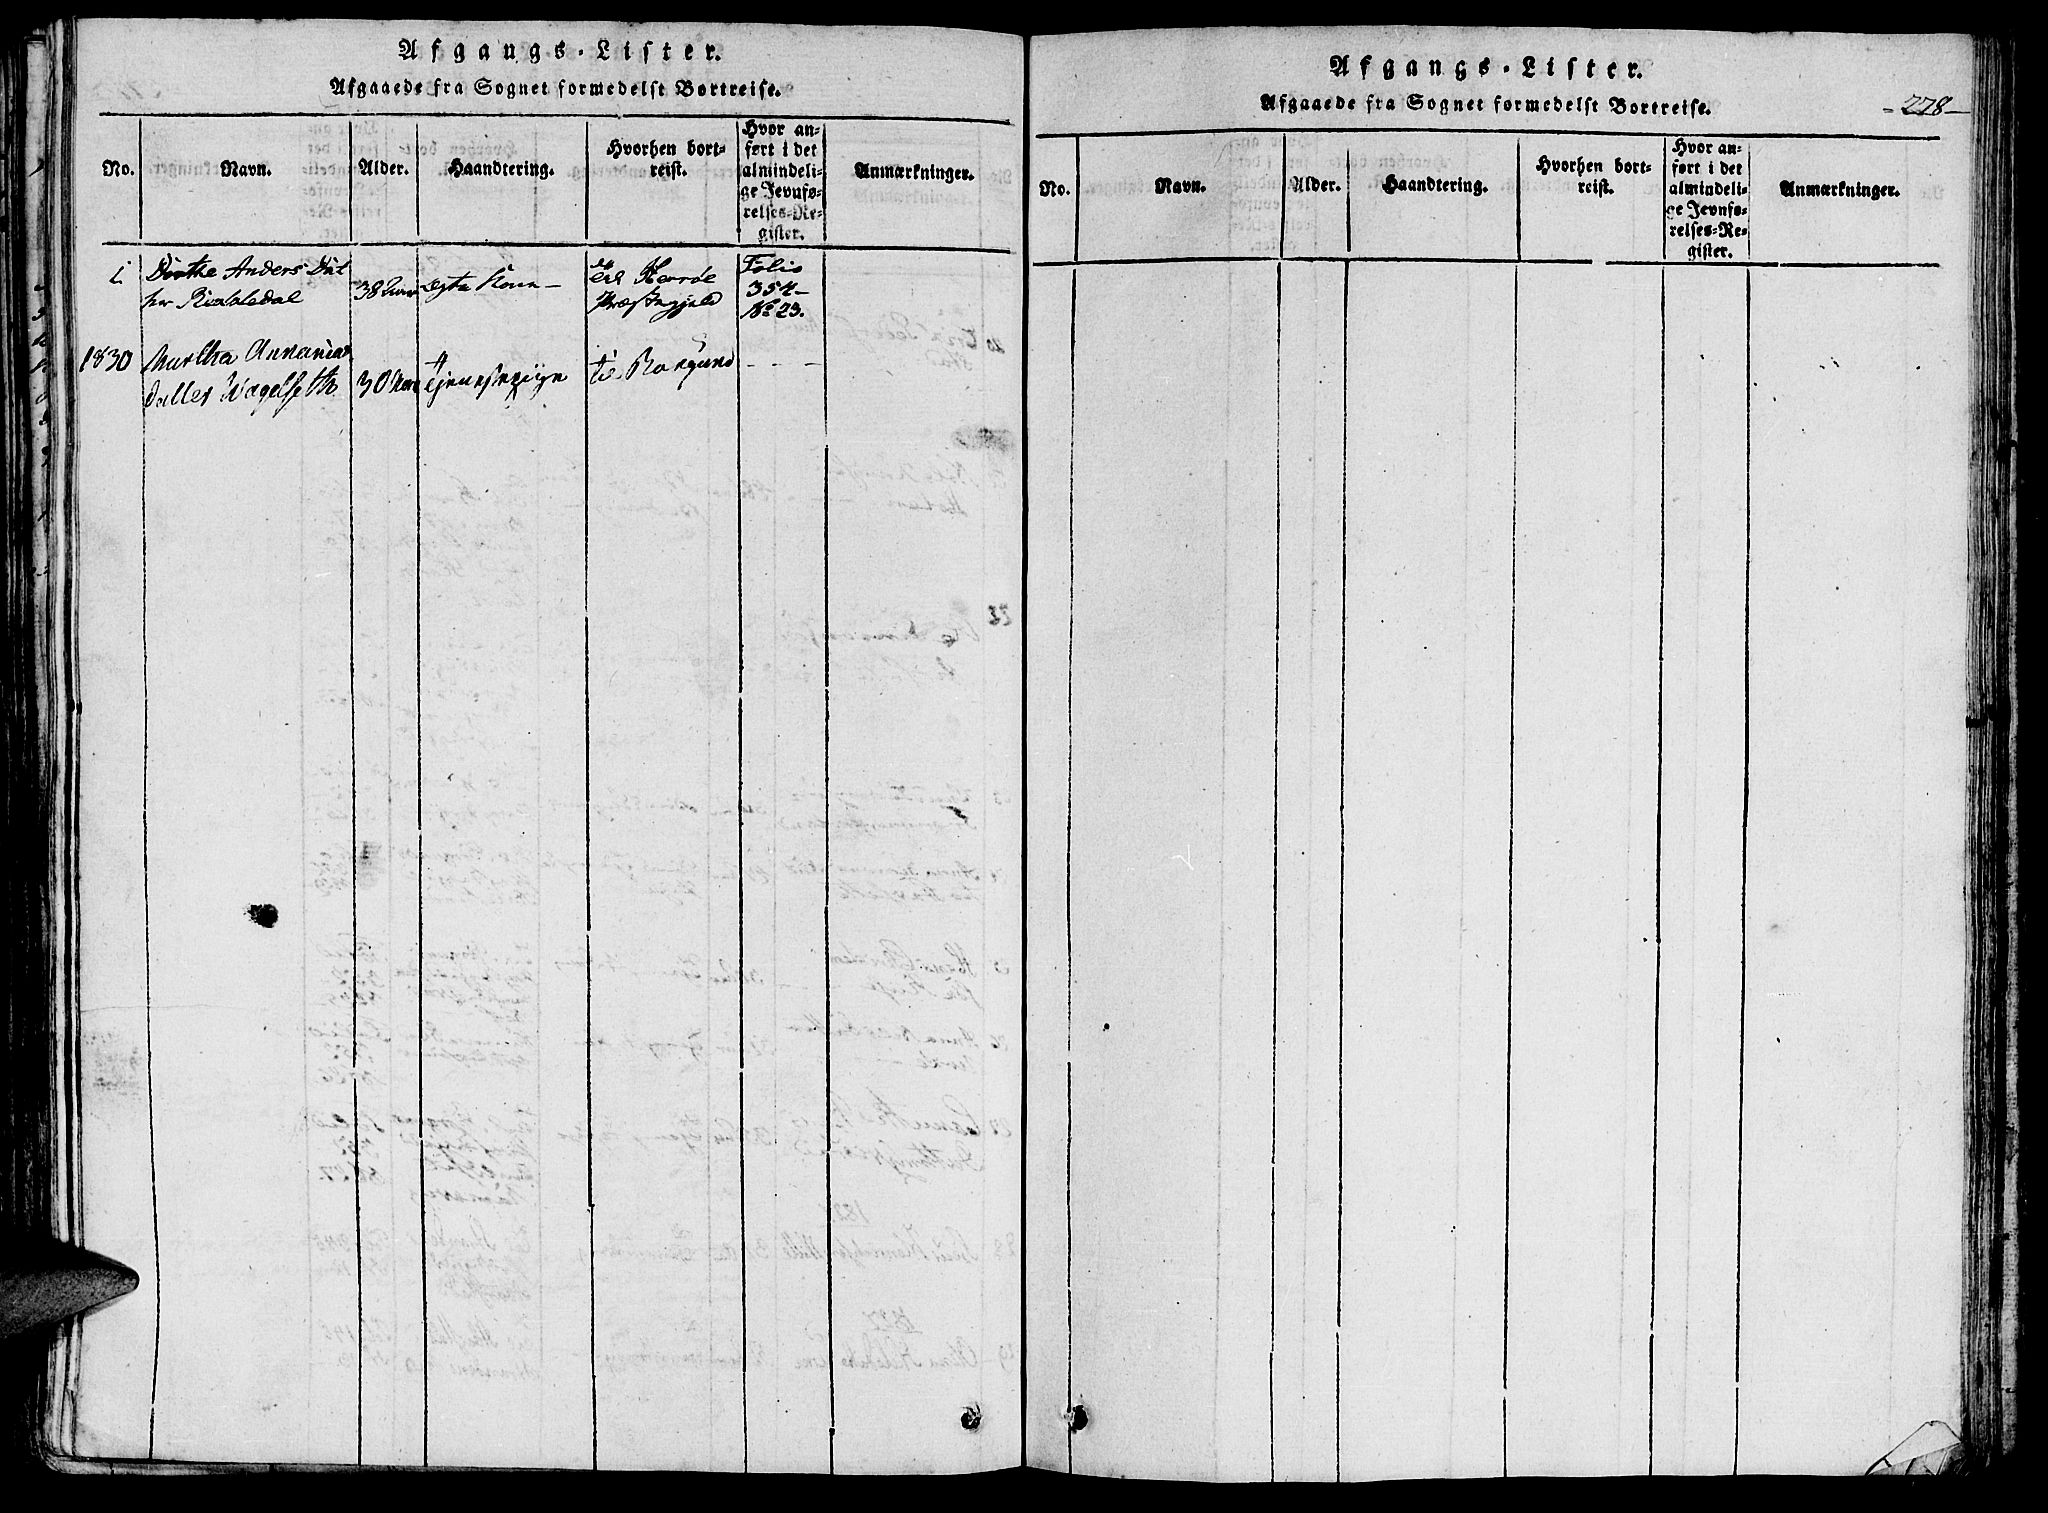 Afgangs-Lister.
Afgaaede fra Sognet formedelst Bortreise.
No.
Navn.
Alder.
Haandtering.
Hvorhen bort-
reist.
Hvor an-
ført i det
almindeli-
ge Jevnfø-
relses-Re-
gister.
Anmærkninger.
1
Dorthe Anders Dat
38
Kone
til Herrøe
Præstegjeld
Folio
354-
No 23.
1830
Martha
30
til Borgund
- - -
Afgangs-Lister.
Afgaaede fra Sognet formedelst Bortreise.
-278-
No.
Navn.
Alder.
Haandtering.
Hvorhen bort-
reist.
Hvor an-
ført i det
almindeli-
ge Jevnfø-
relses-Re-
gister.
Anmærkninger.